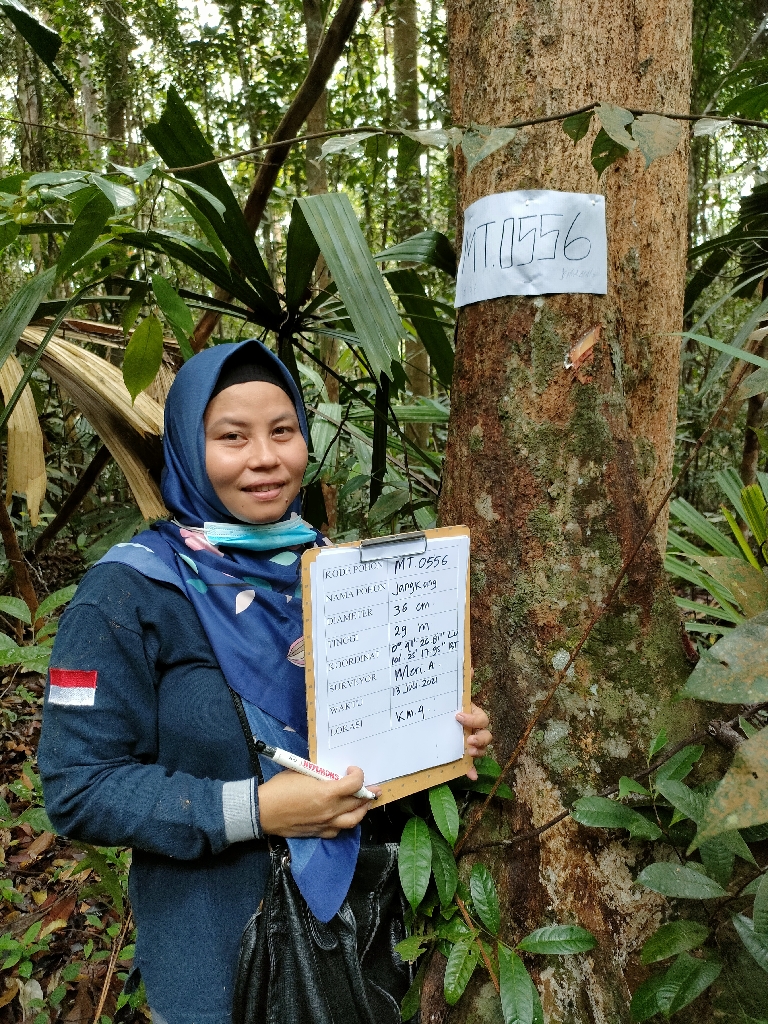 MT.0556
KODE POHON MT.0556
NAMA POHON Jangkang
DIAMETER 36 cm
TINGGI 29 m
KOORDINAT 0° 41' 26 81" LU
101° 23' 17 95" BT
SURVEYOR Meri. A
WAKTU 13 Juli 2021
LOKASI KM.4
SNOWMAN